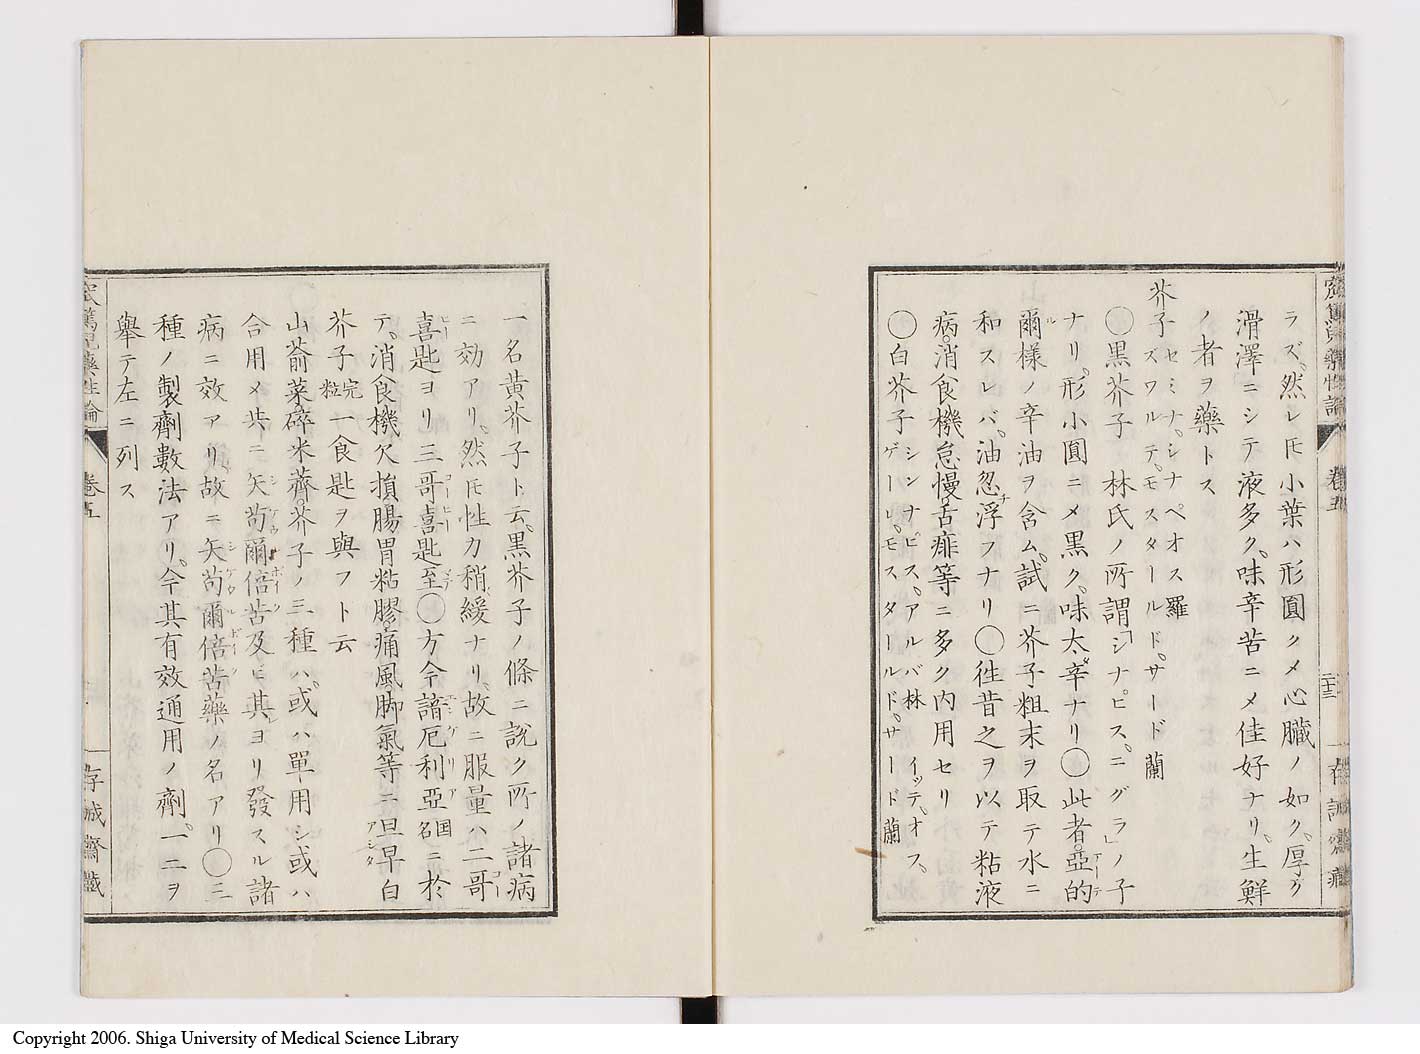 ラズ。然レ𪜈小葉ハ形圓クメ心臟ノ如ク。厚ク
滑澤ニシテ液多ク。味辛苦ニメ佳好ナリ。生鮮
ノ者ヲ藥トス
芥子 セミナ。シナペオス 羅
ズワルテ。モスタールド。サード 蘭
〇黒芥子 林氏ノ所謂「シナピス。ニグラ」ノ子
ナリ。形小圓ニメ黒ク。味太辛ナリ〇此者。亞的
爾様ノ辛油ヲ含ム。試ニ芥子粗末ヲ取テ水ニ
和スレバ。油忽チ浮フナリ〇徃昔之ヲ以テ粘液
病。消食機怠慢。舌痱等ニ多ク内用セリ
〇白芥子 シンナピス。アルバ 林 イッテ。オフ。
ゲール。モスタールド。サード 蘭
卷五
一名黄芥子ト云。黒芥子ノ條ニ説ク所ノ諸病
ニ効アリ。然𪜈性力稍緩ナリ。故ニ服量ハ二哥
喜匙ヨリ三哥喜匙至〇方今諳厄利亞国名ニ於
テ。消食機欠損腸胃粘膠。痛風。脚氣等ニ旦早白
芥子完粒一食匙ヲ與フト云
山萮菜。碎米薺。芥子ノ三種ハ。或ハ單用シ或ハ
合用メ共ニ矢苟爾倍苦及ヒ其ヨリ發スル諸
病ニ效アリ。故ニ矢苟爾倍苦藥ノ名アリ〇三
種ノ製劑數法アリ。今其有效通用ノ劑。一二ヲ
舉テ左ニ列ス
卷五
存誠齋藏
Copyright 2006. Shiga University of Medical Science Library